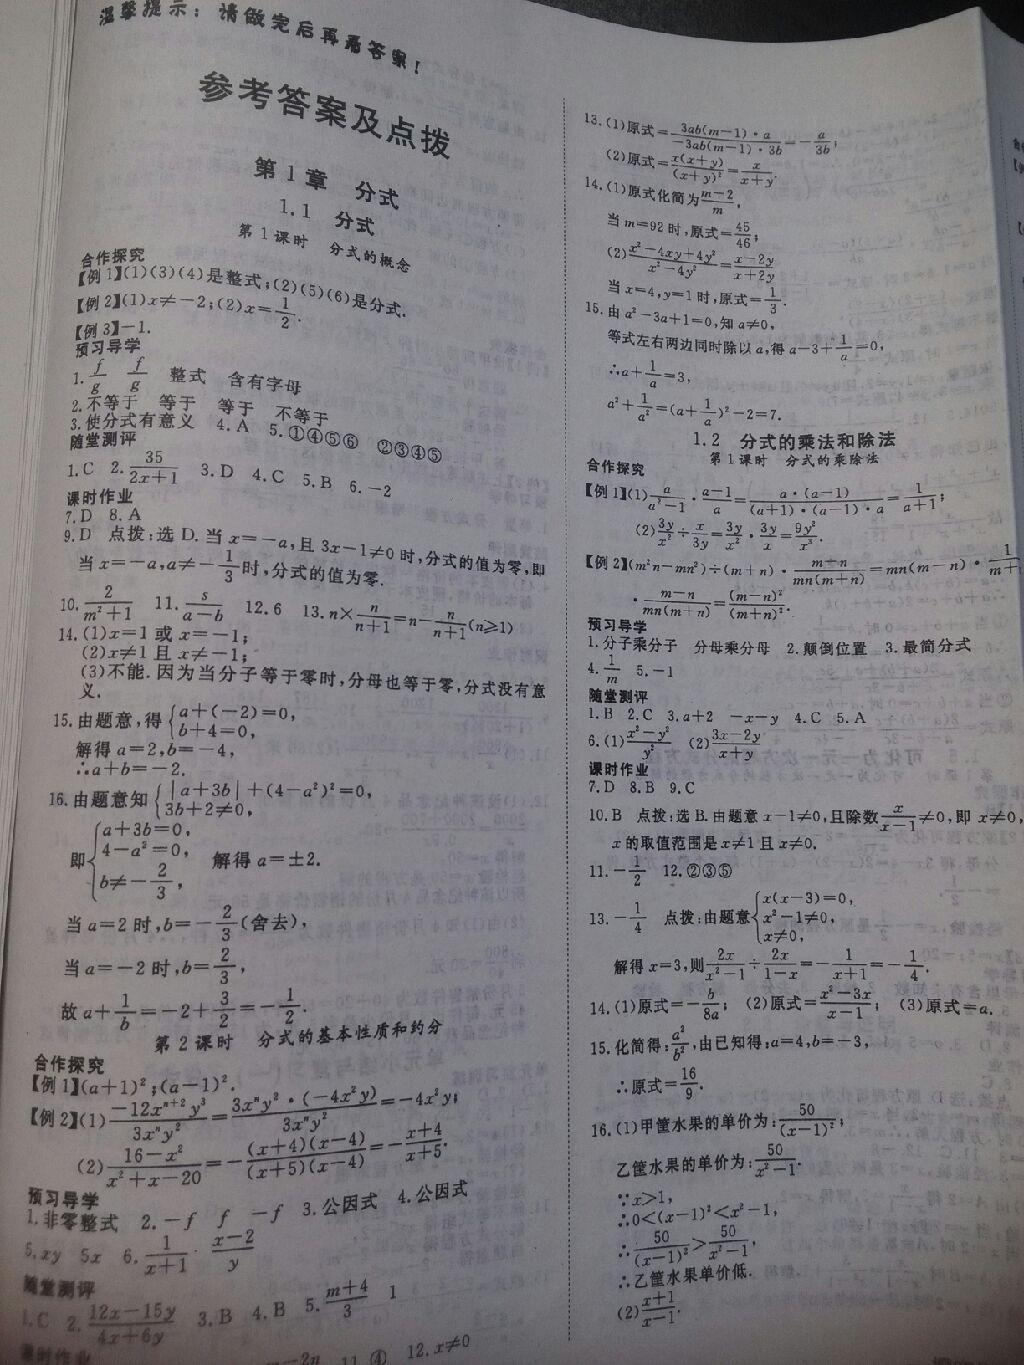 温馨提示：请做完后再看答案！
参考答案及点拨
第1章 分式
1.1 分式
第1课时 分式的概念
合作探究
【例1】(1)(3)(4)是整式；(2)(5)(6)是分式.
【例2】(1)x≠-2；(2)x=1/2.
【例3】-1.
预习导学
1. f/g f/g 整式 含有字母
2.不等于 等于 等于 不等于
3.使分式有意义 4.A 5.①④⑤⑥ ②③④⑤
随堂测评
1.C 2. 35/(2x+1) 3.D 4.C 5.B 6.-2
课时作业
7.D 8.A
9.D 点拨：选D.当x=-a,且3x-1≠0时,分式的值为零,即
当x=-a,a≠-1/3时,分式的值为零.
10. 2/(m²+1) 11. s/(a-b) 12.6 13.n×n/(n+1)=n-n/(n+1)(n≥1)
14.(1)x=1或x=-1；
(2)x≠1且x≠-1；
(3)不能.因为当分子等于零时,分母也等于零,分式没有意
义.
15.由题意,得{a+(-2)=0,
b+4=0,
解得a=2,b=-4,
∴a+b=-2.
16.由题意知{|a+3b|+(4-a²)²=0,
3b+2≠0,
即{a+3b=0,
4-a²=0,
b≠-2/3,
解得a=±2.
当a=2时,b=-2/3(舍去),
当a=-2时,b=2/3,
故a+1/b=-2+3/2=-1/2.
第2课时 分式的基本性质和约分
合作探究
【例1】(a+1)²；(a-1)².
【例2】(1) -12xⁿ⁺²y³/3xⁿy²=3xⁿy²·(-4x²y)/3xⁿy²=-4x²y；
(2) (16-x²)/(x²+x-20)=-(x+4)(x-4)/(x+5)(x-4)=-(x+4)/(x+5).
预习导学
1.非零整式 2.-f f -f 3.公因式 4.公因式
5.xy 5x 6. 1/(x+1) (x-2)/y
随堂测评
1.C 2. (12x-15y)/(4x+6y) 3.B 4.B 5. (m+4)/3 1
课时作业
11.④ 12.x≠0
13.(1)原式=3ab(m-1)·a/-3ab(m-1)·3b=-a/3b；
(2)原式=x(x+y)/(x+y)²=x/(x+y).
14.(1)原式化简为(m-2)/m,
当m=92时,原式=45/46；
(2) (x²-4xy+4y²)/(x²-4y²)=(x-2y)/(x+2y)
当x=4,y=1时,原式=1/3.
15.由a²-3a+1=0,知a≠0,
等式左右两边同时除以a,得a-3+1/a=0,
∴a+1/a=3,
a²+1/a²=(a+1/a)²-2=7.
1.2 分式的乘法和除法
第1课时 分式的乘除法
合作探究
【例1】(1) a/(a²-1)·(a-1)/a=a·(a-1)/(a+1)·(a-1)·a=1/(a+1)；
(2) 3y/x²÷x/3y=3y/x²·3y/x=9y²/x³.
【例2】(m²n-mn²)÷(m+n)·(m-n)/mn(m+n)=mn(m-n)·1/(m+
·(m-n)/mn(m+n)=(m-n)²/(m+n)².
预习导学
1.分子乘分子 分母乘分母 2.颠倒位置 3.最简分式
4. 1/m 5.-1
随堂测评
1.B 2.C 3.a+2 -x-y 4.C 5.A
6.(1) (x²-y²)/y² (2) (3x-2y)/(x+y)
课时作业
7.D 8.B 9.C
10.B 点拨：选B.由题意x-1≠0,且除数x/(x-1)≠0,即x≠0,
x的取值范围是x≠1且x≠0.
11.-1/2 12.②③⑤
13.-1/4 点拨：由题意{x(x-3)=0,
x²-1≠0,
x≠0,
解得x=3,则2x/(x²-1)÷2x/(1-x)=-1/(x+1)=-1/4.
14.(1)原式=-b/8a； (2)原式=(x²-3x)/(x-1)； (3)原式=a.
15.化简得：a²/b²,由已知得：a=4,b=-3,
∴原式=16/9.
16.(1)甲筐水果的单价为：50/(x-1)²；
乙筐水果的单价为：50/(x²-1).
∵x>1,
∴0<(x-1)²<x²-1,
∴50/(x-1)²>50/(x²-1),
∴乙筐水果单价低.
(2) (x+1)/(x-1).